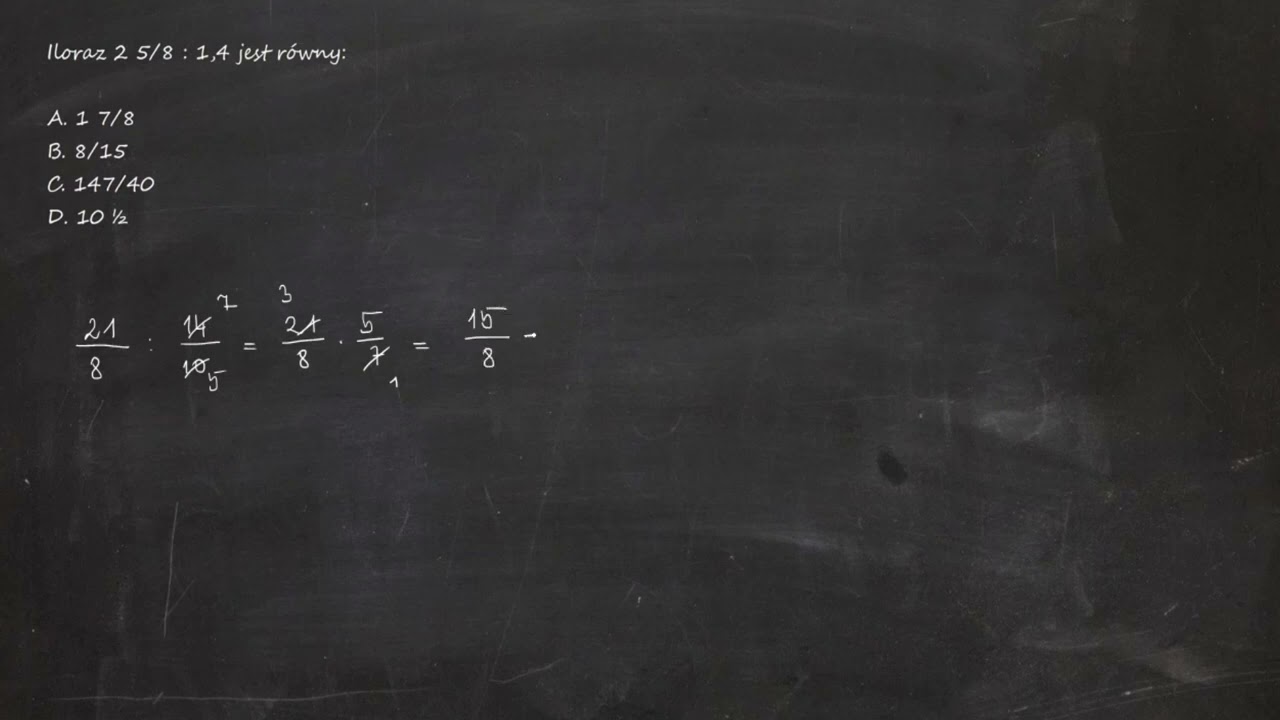 Iloraz 2 5/8 : 1,4 jest równy:
A. 1 7/8
B. 8/15
C. 147/40
D. 10 ½
21/8 : 14/10 7/5 = 21/8 3 · 5/7 1 = 15/8 -